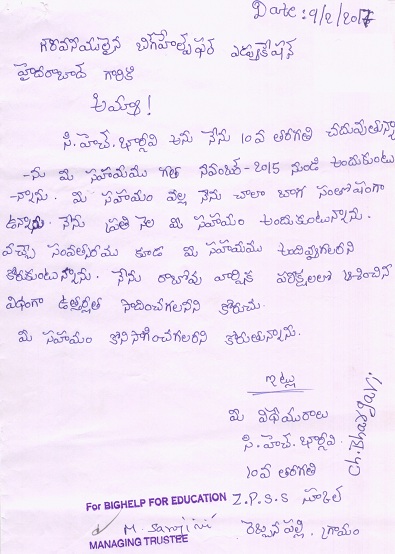 Date: 9/2/2017
గౌరవనీయులైన బిగ్‌హెల్ప్ ఫర్ ఎడ్యుకేషన్
హైదరాబాద్ గారికి
అమ్మా!
సి. హెచ్. భార్గవి అను నేను 10వ తరగతి చదువుతున్నా
-ను మీ సహాయము గత నవంబర్-2015 నుండి అందుకుంటు
-న్నాను. మీ సహాయం వల్ల నేను చాలా బాగ సంతోషంగా
ఉన్నాను. నేను ప్రతి నెల మీ సహాయం అందుకుంటున్నాను.
వచ్చే సంవత్సరము కూడ మీ సహాయము అందివ్వగలరని
కోరుకుంటున్నాను. నేను రాబోవు వార్షిక పరీక్షలలో ఆశించిన
విధంగా ఉత్తీర్ణత సాదించగలనని కోరుచు.
మీ సహాయం కొనసాగించగలరని కోరుతున్నాను.
ఇట్లు
మీ విధేయురాలు
సి. హెచ్. భార్గవి.
10వ తరగతి
Z.P.S.S స్కూల్
గ్రామం
Ch. Bhargavi
For BIGHELP FOR EDUCATION
M. Sarojini
MANAGING TRUSTEE